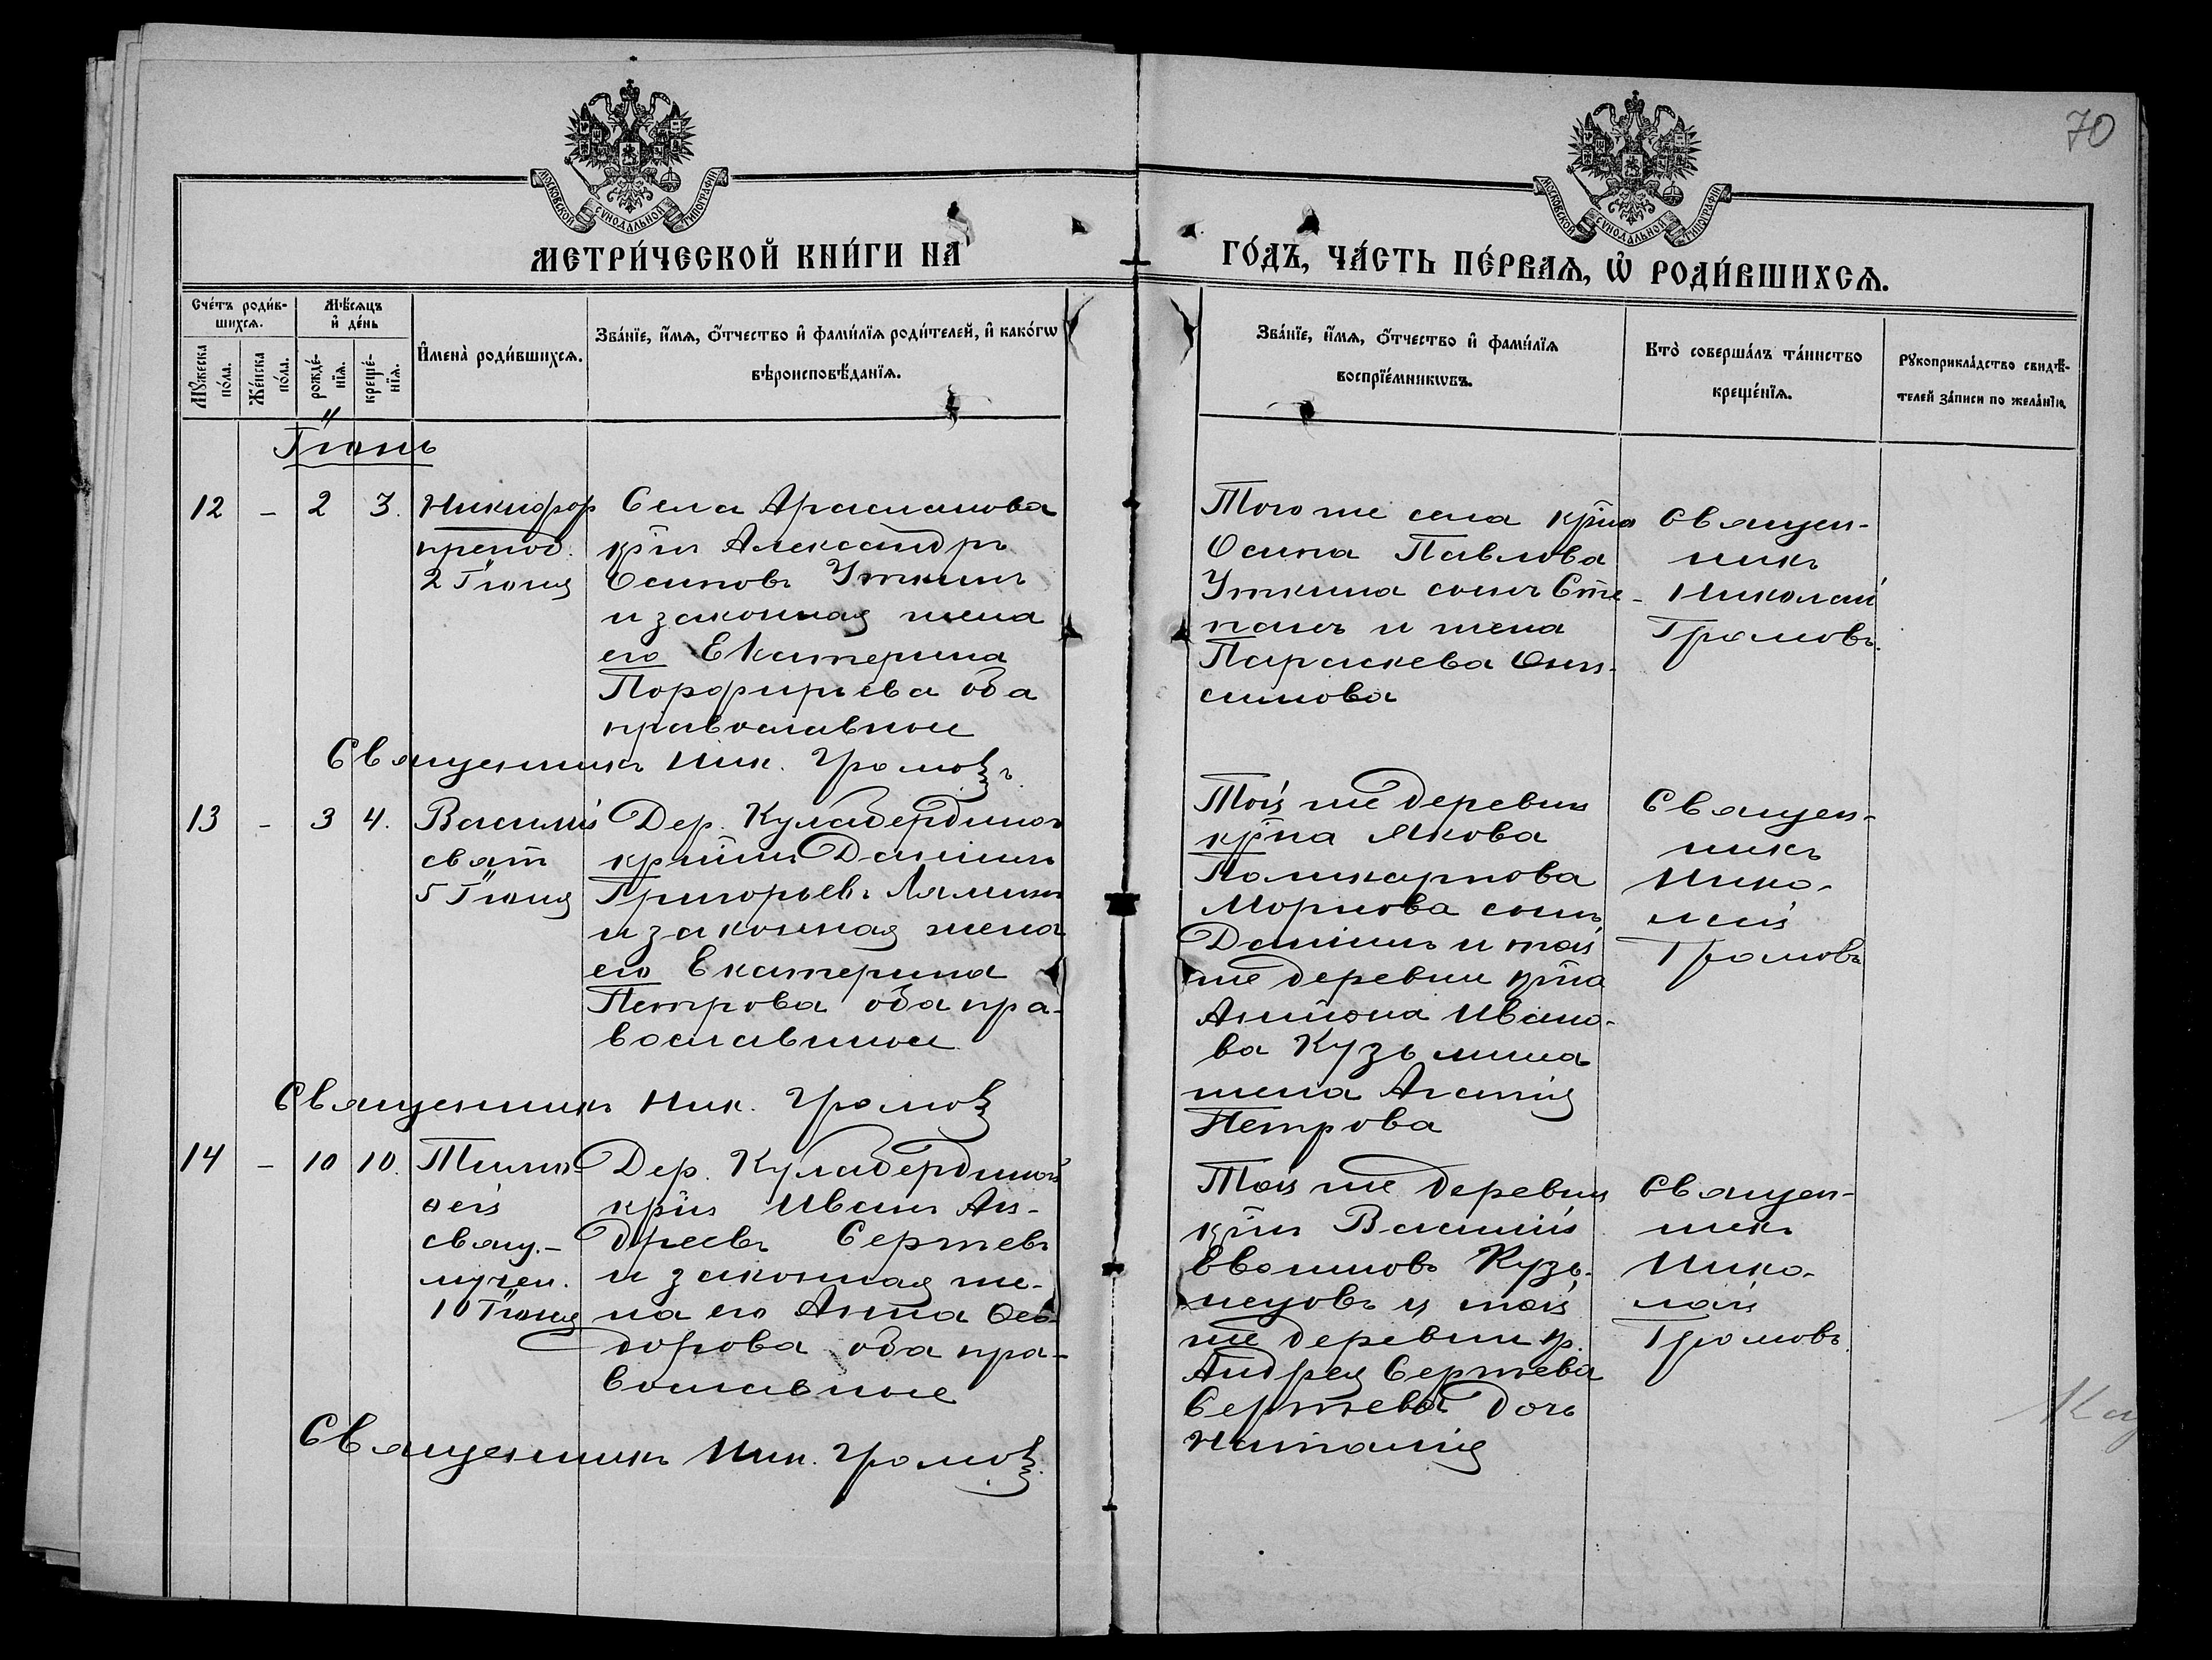 70
МОСКОВСКОЙ СѴНОДАЛЬНОЙ ТИПОГРАФІИ
МОСКОВСКОЙ СѴНОДАЛЬНОЙ ТИПОГРАФІИ
МЕТРИ́ЧЕСКОЙ КНИ́ГИ НА
ГО́ДЪ, ЧА́СТЬ ПЕ́РВАѦ, Ѽ РОДИ́ВШИХСѦ.
Счє́тъ роди́в-
шихсѧ.
Мѣ́сѧцъ
и҆ де́нь
Мꙋ́жеска
по́ла.
Же́нска
по́ла.
рожде́-
нїѧ.
креще́-
нїѧ.
И҆мена̀ роди́вшихсѧ.
Зва́нїе, и҆́мѧ, ѻ҆́тчество и҆ фами́лїѧ роди́телей, и҆ како́гѡ
вѣроисповѣ́данїѧ.
Зва́нїе, и҆́мѧ, ѻ҆́тчество и҆ фами́лїѧ
воспрїе́мникѡвъ.
Кто̀ соверша́лъ та́инство
креще́нїѧ.
Рꙋкоприкла́дство свидѣ́-
телей за́писи по жела́нїю.
Іюнь
12 - 2 3.
Никифор
препод.
2 Іюня
Села Арасланова
кр̃нъ Александръ
Осиповъ Уткинъ
и законная жена
его Екатерина
Порфирьева оба
православные
Того же села кр̃на
Осипа Павлова
Уткина сынъ Сте-
панъ и жена
Параскева Они-
симова
Священ-
никъ
Николай
Громовъ.
Священникъ Ник. Громовъ
13 - 3 4.
Василій
свят
5 Іюня
Дер. Кулабердиной
кр̃нинъ Даніилъ
Григорьевъ Лялинъ
и законная жена
его Екатерина
Петрова оба пра-
вославные
Той же деревни
кр̃на Якова
Поликарпова
сынъ
Даніилъ и той
же деревни кр̃на
Антона Ивано-
ва Кузьмина
жена Агапія
Петрова
Священ-
никъ
Нико-
лай
Громовъ
Священникъ Ник. Громовъ
14 - 10 10.
Тимо-
ѳей
свящ.-
мучен.
10 Іюня
Дер. Кулабердиной
кр̃нъ Иванъ Ан-
дреевъ Сергѣевъ
и законная же-
на его Анна Ѳео-
дорова оба пра-
вославные
Той же деревни
кр̃нъ Василій
Кузь-
нецовъ и той
же деревни кр.
Андрея Сергѣева
Сергѣева дочь
Наталія
Священ-
никъ
Нико-
лай
Громовъ.
Священникъ Ник. Громовъ